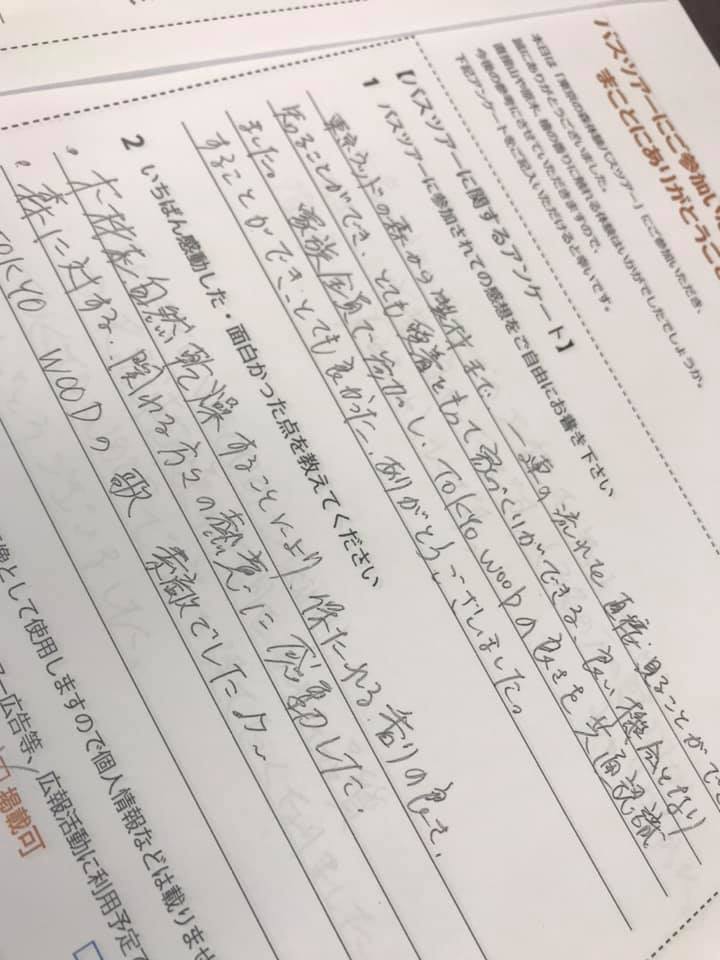 バスツアーにご参加い
まことにありがとうご
本日は「東京の森体験バスツアー」にご参加いただき、
誠にありがとうございました。
山や原木、檜の香りに触れる体験はいかがでしたでしょうか。
今後の参考にさせていただきますので、
下記アンケートをご記入いただけると幸いです。
【バスツアーに関するアンケート】
1 バスツアーに参加されての感想をご自由にお書き下さい
東京ウッドの森から製材まで 一連の流れを 直接 見ることがで
知ることができ、とても愛着をもって家づくりができる 良い機会となり
ました。 家族全員で参加し、TOKYO WOODの良さを 共通認識
することができ、とても良かった、ありがとうございました。
2 いちばん感動した・面白かった点を教えてください
・木材を自然乾燥することにより、保たれる香りの良さ、
・森に対する、関わる方々の熱意に感動した、
TOKYO WOODの歌 素敵でした♪〜
像として使用しますので個人情報などは載りませ
ー広告等、広報活動に利用予定で
掲載可